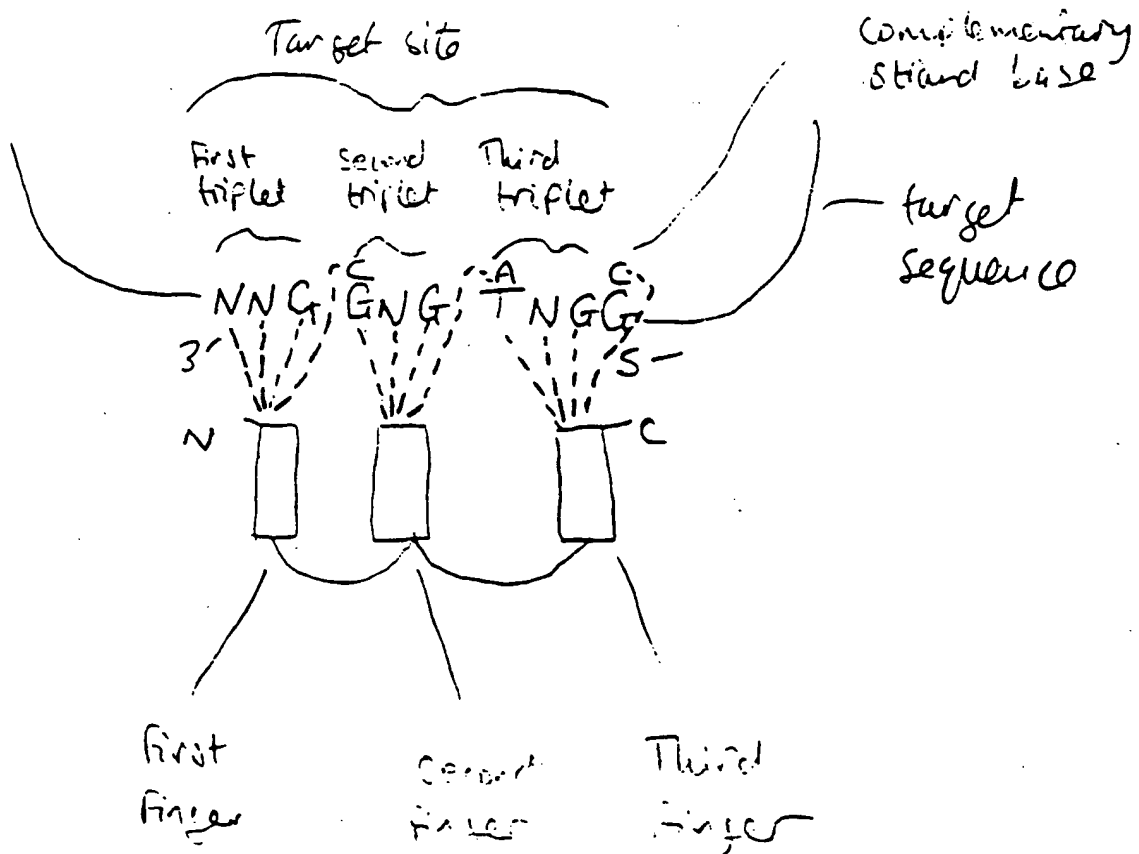 Target site
complementary
strand base
First
triplet
second
triplet
Third
triplet
target
sequence
C A C
NNG GNG TNGG
3' 5
N C
First
Finger
second
Finger
Third
Finger